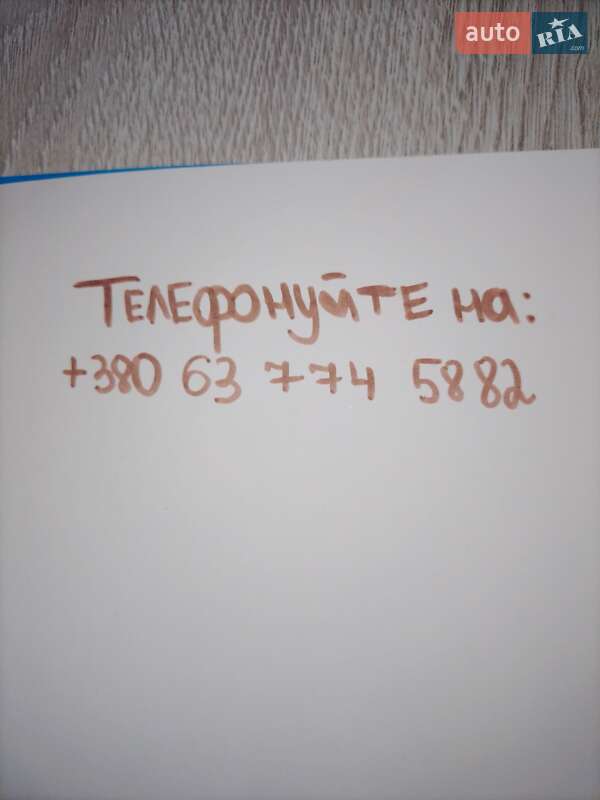 auto RIA.com
Телефонуйте на:
+380 63 774 5882